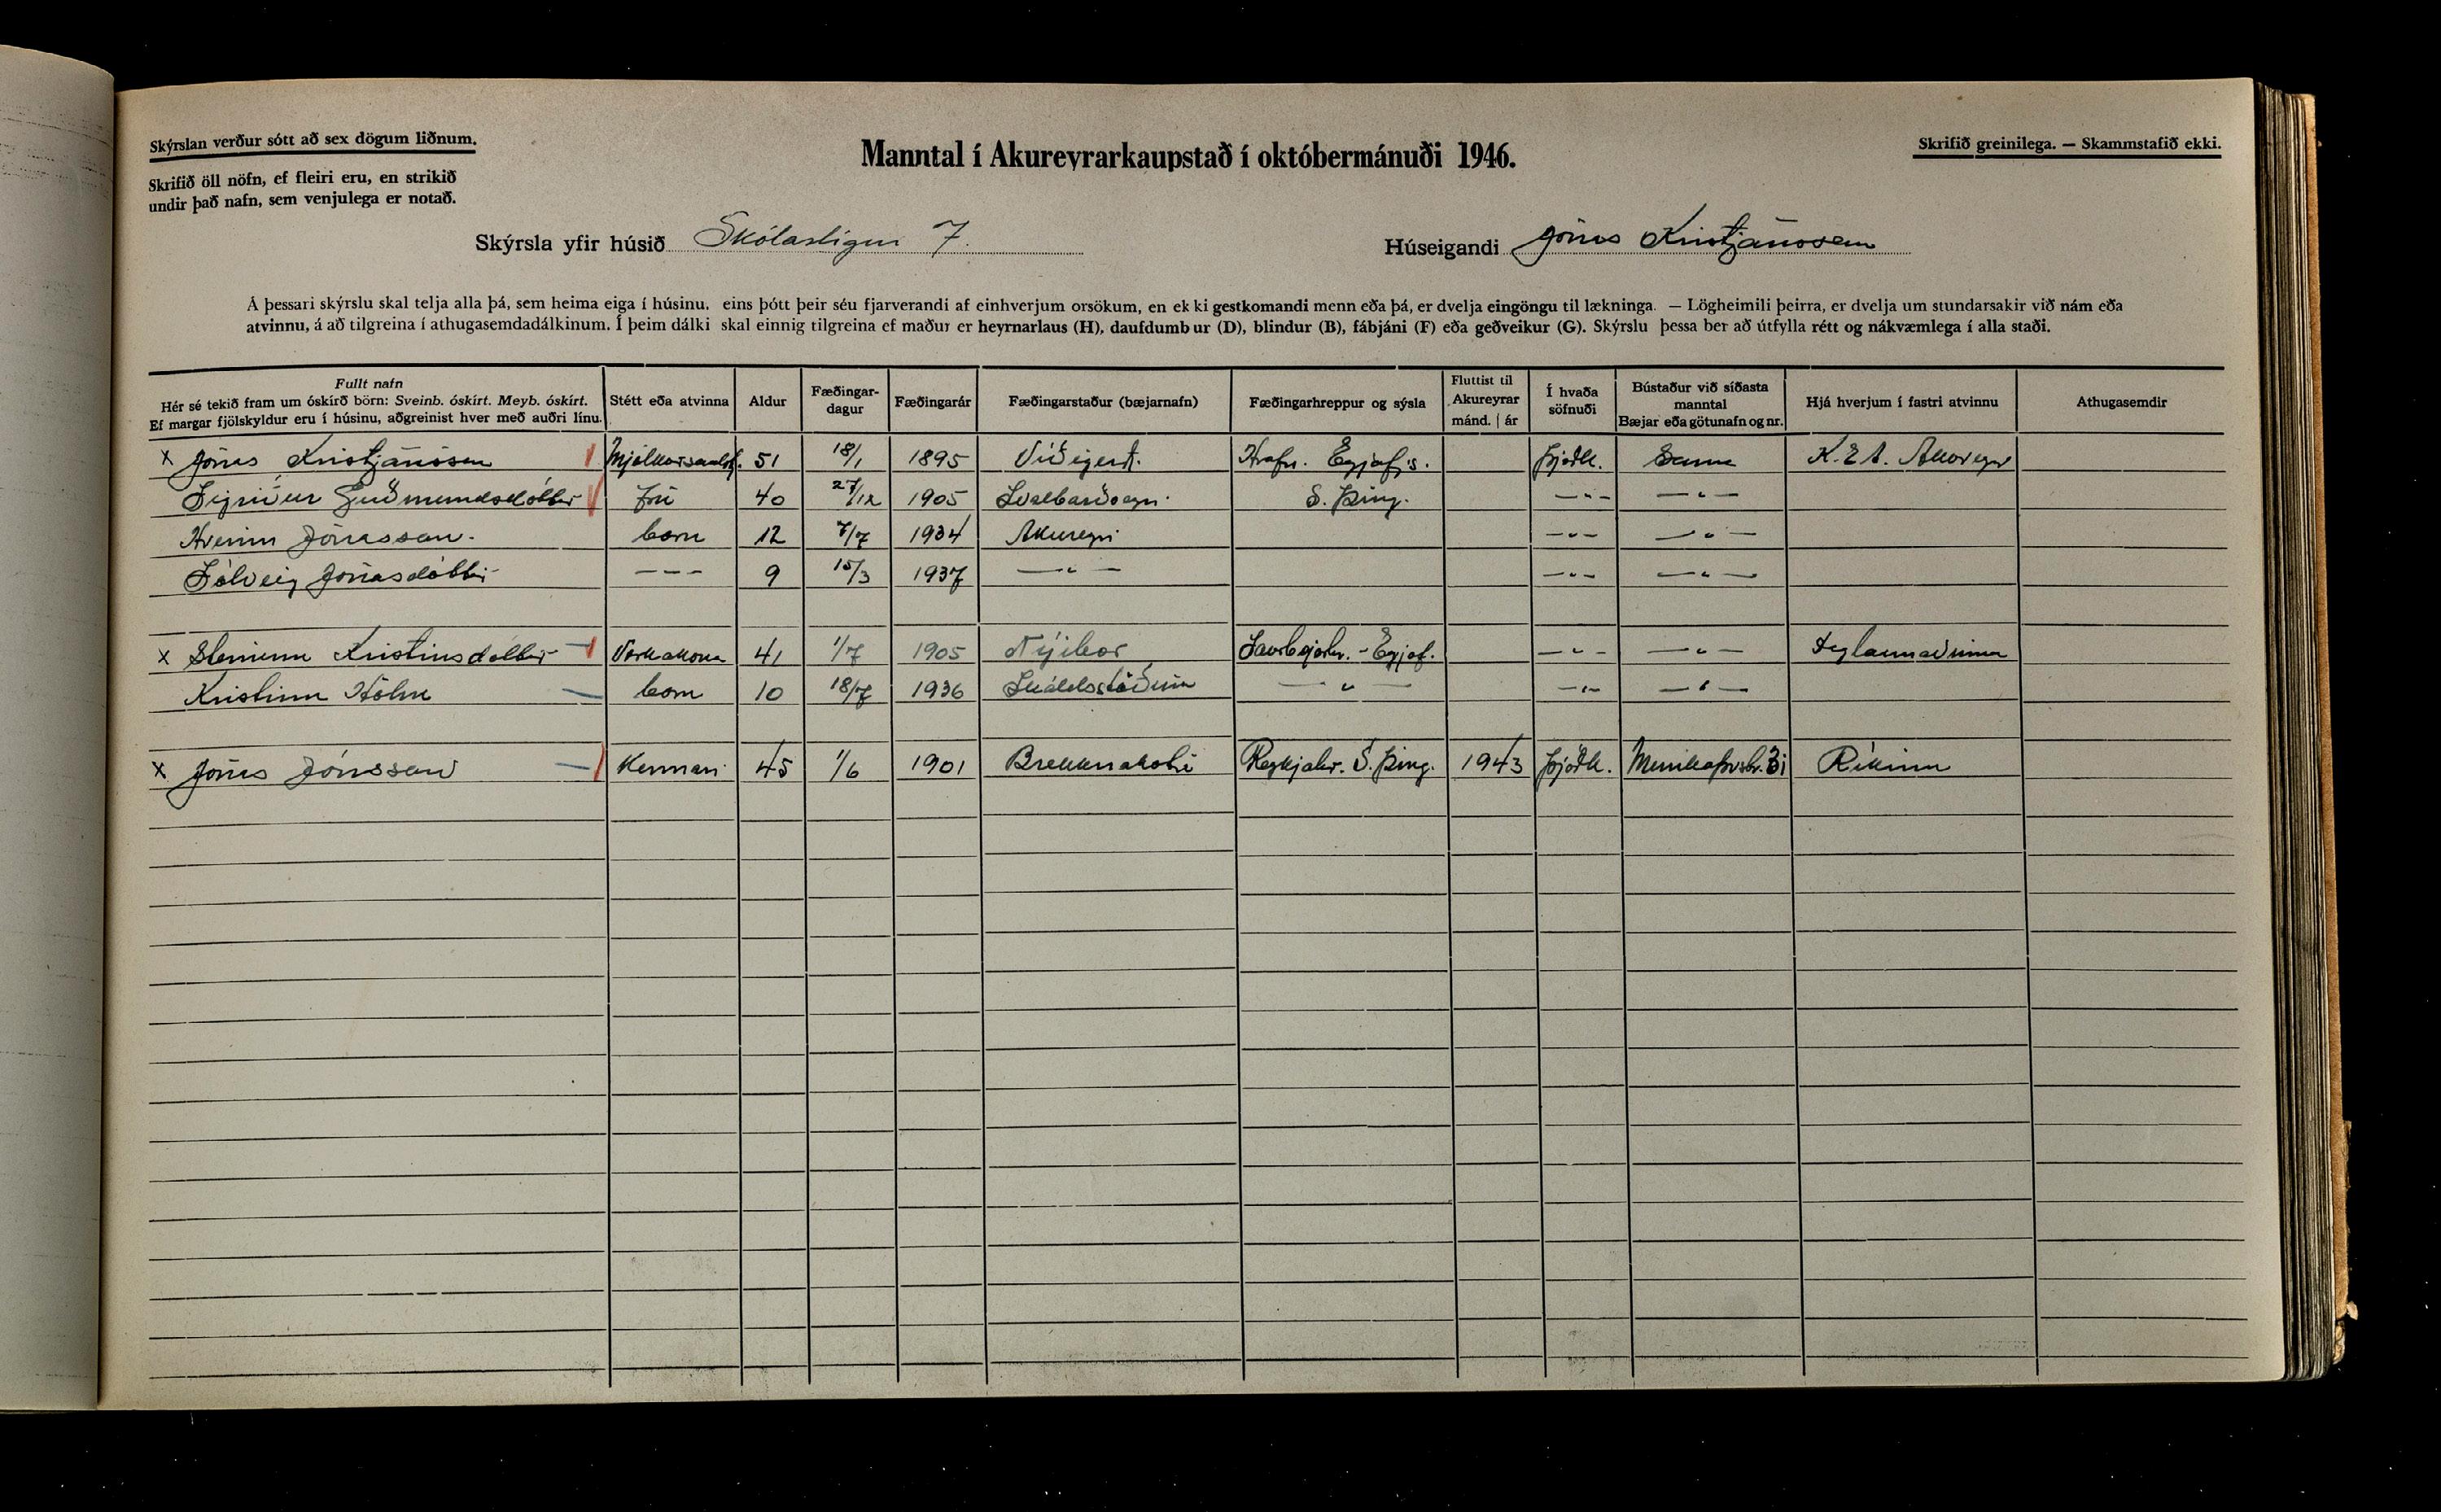 Skýrslan verður sótt að sex dögum liðnum.
Skrifið öll nöfn, ef fleiri eru, en strikið
undir það nafn, sem venjulega er notað.
Manntal í Akureyrarkaupstað í októbermánuði 1946.
Skrifið greinilega. — Skammstafið ekki.
Skýrsla yfir húsið Skólastígur 7.
Húseigandi Jónas Kristjánsson
Á þessari skýrslu skal telja alla þá, sem heima eiga í húsinu, eins þótt þeir séu fjarverandi af einhverjum orsökum, en ekki gestkomandi menn eða þá, er dvelja eingöngu til lækninga. — Lögheimili þeirra, er dvelja um stundarsakir við nám eða
atvinnu, á að tilgreina í athugasemdadálkinum. Í þeim dálki skal einnig tilgreina ef maður er heyrnarlaus (H), daufdumbur (D), blindur (B), fábjáni (F) eða geðveikur (G). Skýrslu þessa ber að útfylla rétt og nákvæmlega í alla staði.
Fullt nafn
Hér sé tekið fram um óskírð börn: Sveinb. óskírt. Meyb. óskírt.
Ef margar fjölskyldur eru í húsinu, aðgreinist hver með auðri línu.
Stétt eða atvinna
Aldur
Fæðingar-
dagur
Fæðingarár
Fæðingarstaður (bæjarnafn)
Fæðingarhreppur og sýsla
Fluttist til
Akureyrar
mánd. | ár
Í hvaða
söfnuði
Bústaður við síðasta
manntal
Bæjar eða götunafn og nr.
Hjá hverjum í fastri atvinnu
Athugasemdir
x Jónas Kristjánsson 51 18/1 1895 Víðigerði. Hrafn. Eyjafjs. Þjóðk. Sama K.E.A. Akureyri
Sigríður Guðmundsdóttir frú 40 27/12 1905 S. Þing. — " — — " —
Hreinn Jónasson. barn 12 7/7 1934 Akureyri — " — — " —
Sólveig Jónasdóttir — — — 9 15/3 1937 — " — — " — — " —
x Steinunn Kristinsdóttir Verkakona 41 1/7 1905 Nýibær Saurbæjarhr. - Eyjaf. — " — — " —
Kristinn Hólm barn 10 18/7 1936 — " — — " — — " —
x Jónas Jónsson Kennari 45 1/6 1901 Brekknakoti Reykjahr. S. Þing. 1943 Þjóðk. Ríkinu